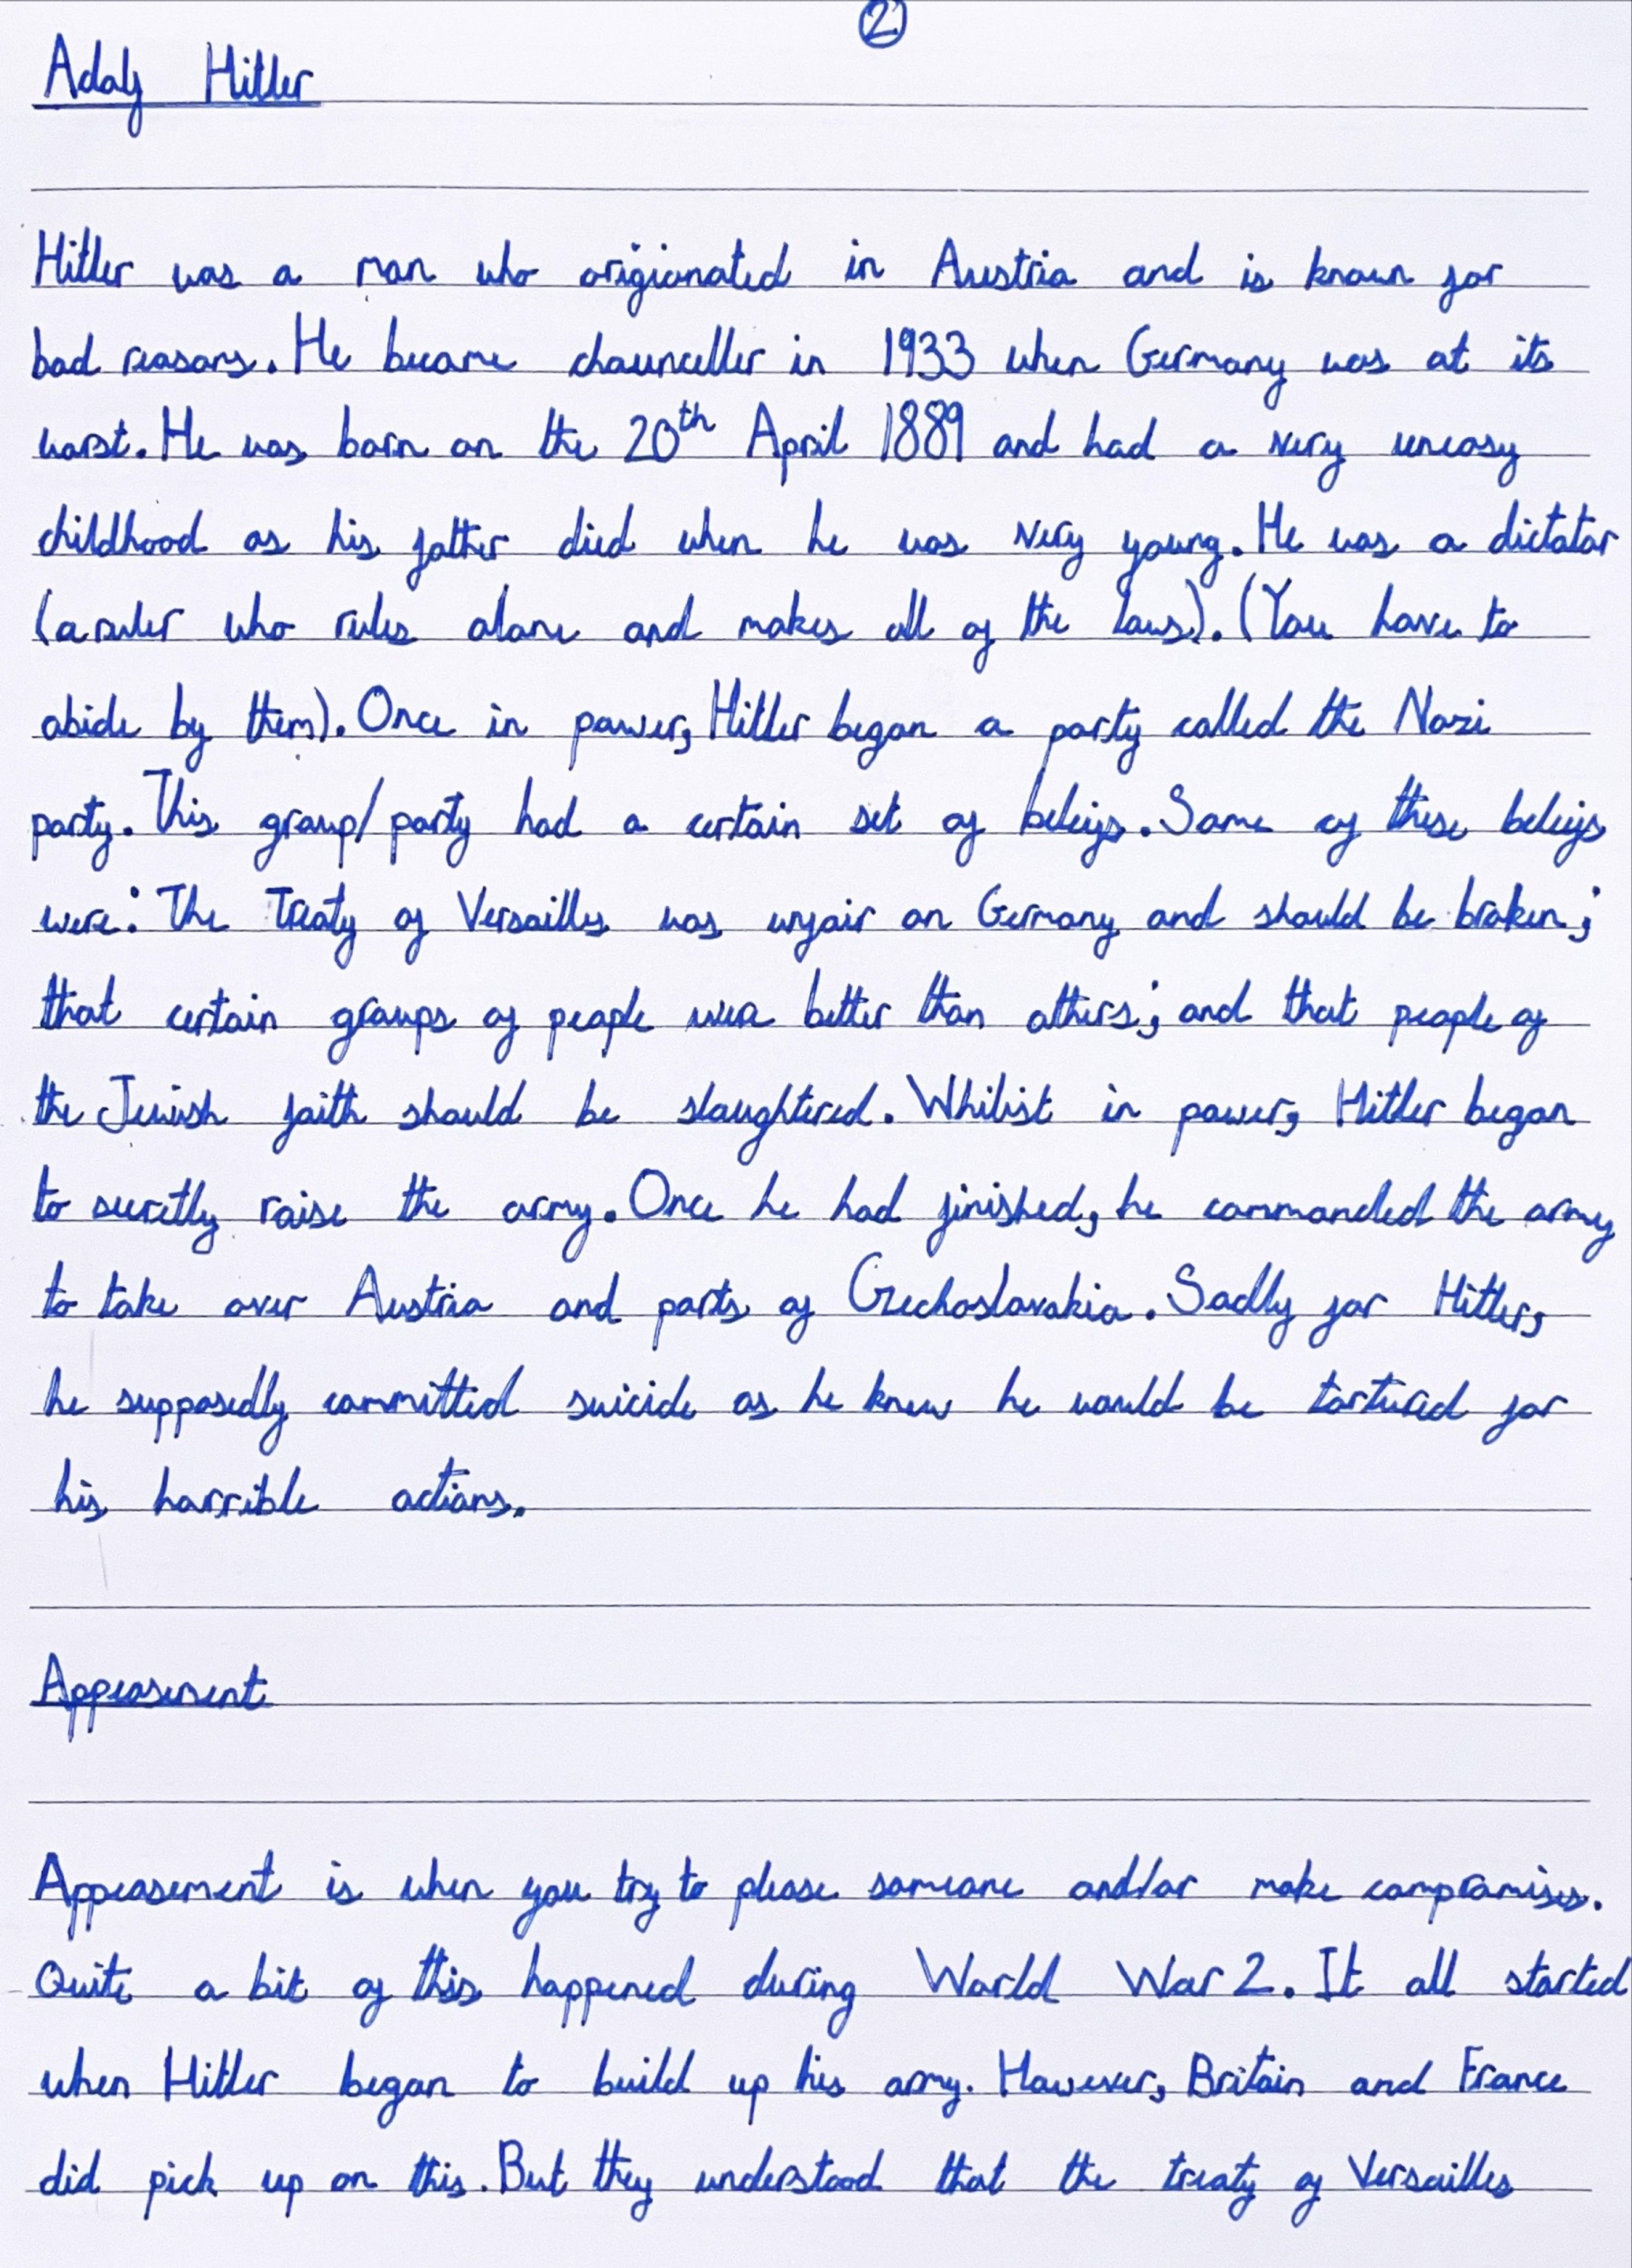 2
Adolf Hitler
Hitler was a man who origionated in Austria and is known for
bad reasons. He became chaunceller in 1933 when Germany was at its
worst. He was born on the 20th April 1889 and had a very uneasy
childhood as his father died when he was very young. He was a dictator
(a ruler who rules alone and makes all of the laws). (You have to
abide by them). Once in power, Hitler began a party called the Nazi
party. This group/party had a certain set of beleifs. Some of these beleifs
were: The Treaty of Versailles was unfair on Germany and should be broken;
that certain groups of people were better than others; and that people of
the Jewish faith should be slaughtered. Whilist in power, Hitler began
to secretly raise the army. Once he had finished, he commanded the army
to take over Austria and parts of Czechoslovakia. Sadly for Hitler,
he supposedly committed suicide as he knew he would be tortured for
his horrible actions.
Appeasement
Appeasement is when you try to please someone and/or make compromises.
Quite a bit of this happened during World War 2. It all started
when Hitler began to build up his army. However, Britain and France
did pick up on this. But they understood that the treaty of Versailles